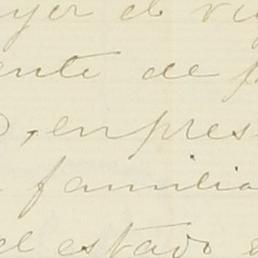 ayer el vi
ente de p
, en pres
familia
el estado